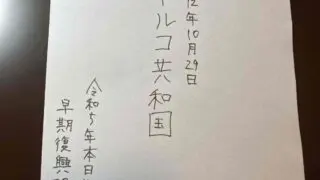 12年10月29日
トルコ共和国
令和5年本日
早期復興